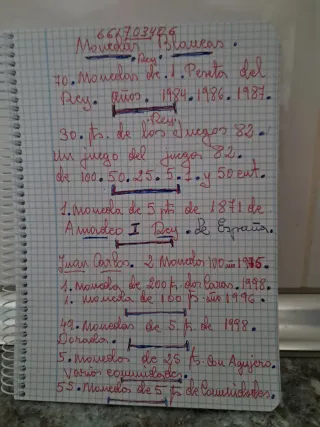 661703466
Monedas Blancas.
Rey.
70. Monedas de. 1. Peseta del
Rey. años. 1984. 1986. 1987.
Rey.
30. pts. de los Juegos 82.
un juego del juegos 82.
de 100. 50. 25. 5. 1. y 50 cent.
1. moneda de 5 pts de 1871 de
Amadeo I Rey. de España.
Juan Carlos. 2 Monedas 100 1975.
1. moneda de 200 p. dos Caras. 1998.
1. moneda de 100 p. 1996.
49. Monedas de 5. p. de 1998
Dorados.
5. Monedas de 25 pts. Con Agujero.
Varios comunidades.
55. Monedas de 5 pts de Comunidades.